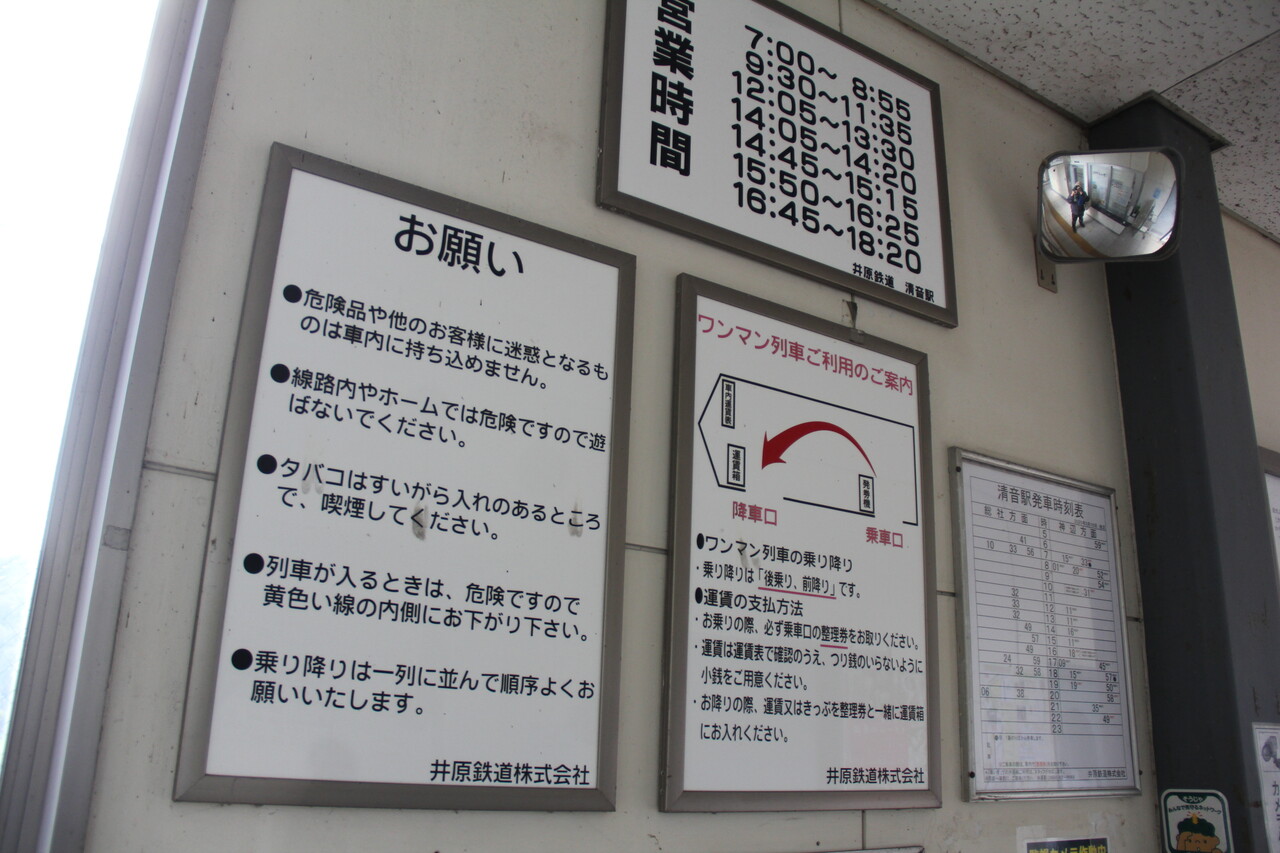 営業時間
7:00～ 8:55
9:30～11:35
12:05～13:30
14:05～14:20
14:45～15:15
15:50～16:25
16:45～18:20
井原鉄道 清音駅
お願い
●危険品や他のお客様に迷惑となるも
のは車内に持ち込めません。
●線路内やホームでは危険ですので遊
ばないでください。
●タバコはすいがら入れのあるところ
で、喫煙してください。
●列車が入るときは、危険ですので
黄色い線の内側にお下がり下さい。
●乗り降りは一列に並んで順序よくお
願いいたします。
井原鉄道株式会社
ワンマン列車ご利用のご案内
車内運賃表
運賃箱
発券機
降車口
乗車口
●ワンマン列車の乗り降り
・乗り降りは「後乗り、前降り」です。
●運賃の支払方法
・お乗りの際、必ず乗車口の整理券をお取りください。
・運賃は運賃表で確認のうえ、つり銭のいらないように
小銭をご用意ください。
・お降りの際、運賃又はきっぷを整理券と一緒に運賃箱
にお入れください。
井原鉄道株式会社
清音駅発車時刻表
総社方面 時 神辺方面
5
41 6 59
10 33 56 7
8
9
10
32 11
33 12
32 13
49 14
57 15
49 16
24 59 17
32 58 18
19
06 38 20
21
22
23
井原鉄道株式会社